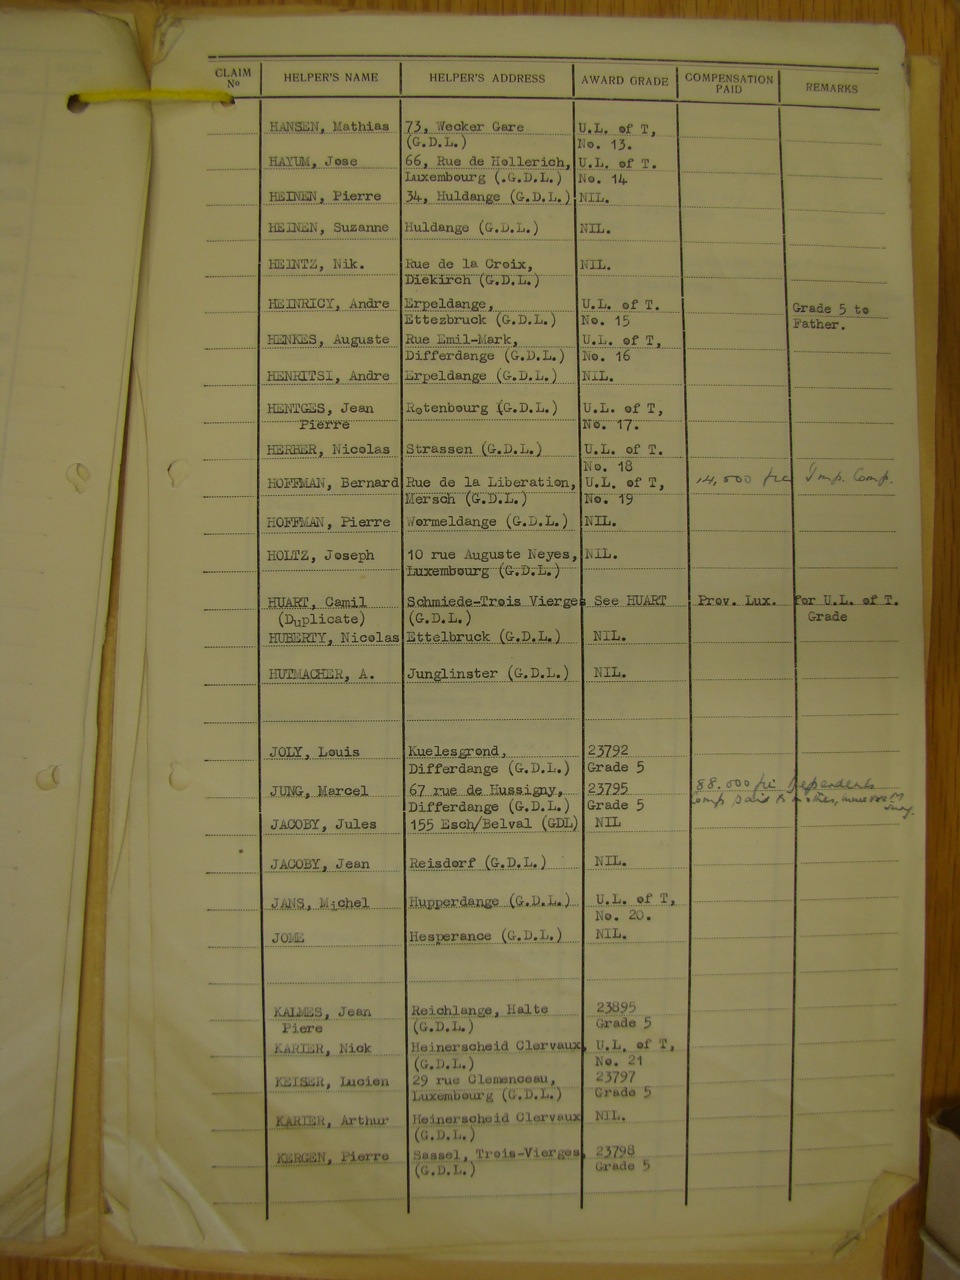 CLAIM No HELPER'S NAME HELPER'S ADDRESS AWARD GRADE COMPENSATION PAID REMARKS
HANSEN, Mathias 73, Wecker Gare U.L. of T,
(G.D.L.) No. 13.
HAYUM, Jose 66, Rue de Hollerich, U.L. of T.
Luxembourg (.G.D.L.) No. 14
HEINEN, Pierre 34, Huldange (G.D.L.) NIL.
HEINEN, Suzanne Huldange (G.D.L.) NIL.
HEINTZ, Nik. Rue de la Croix, NIL.
Diekirch (G.D.L.)
HEINRICY, Andre Erpeldange, U.L. of T. Grade 5 to
Ettezbruck (G.D.L.) No. 15 Father.
HENKES, Auguste Rue Emil-Mark, U.L. of T,
Differdange (G.D.L.) No. 16
HENRITSI, Andre Erpeldange (G.D.L.) NIL.
HENTGES, Jean Rotenbourg (G.D.L.) U.L. of T,
Pierre No. 17.
HERBER, Nicolas Strassen (G.D.L.) U.L. of T.
No. 18
HOFFMAN, Bernard Rue de la Liberation, U.L. of T, 14,000 frc Imp. Comp.
Mersch (G.D.L.) No. 19
HOFFMAN, Pierre Wormeldange (G.D.L.) NIL.
HOLTZ, Joseph 10 rue Auguste Neyes, NIL.
Luxembourg (G.D.L.)
HUART, Camil Schmiede-Trois Vierges See HUART Prov. Lux. for U.L. of T.
(Duplicate) (G.D.L.) Grade
HUBERTY, Nicolas Ettelbruck (G.D.L.) NIL.
HUTMACHER, A. Junglinster (G.D.L.) NIL.
JOLY, Louis Kuelesgrond, 23792
Differdange (G.D.L.) Grade 5
JUNG, Marcel 67 rue de Hussigny, 23795 88.000 frc Dependents
Differdange (G.D.L.) Grade 5 Comp paid to mother,
JACOBY, Jules 155 Esch/Belval (GDL) NIL
JACOBY, Jean Reisdorf (G.D.L.) NIL.
JANS, Michel Hupperdange (G.D.L.) U.L. of T,
No. 20.
JOME Hesperance (G.D.L.) NIL.
KALMES, Jean Reichlange, Halte 23895
Piere (G.D.L.) Grade 5
KARIER, Nick Heinerscheid Clervaux, U.L. of T,
(G.D.L.) No. 21
KEISER, Lucien 29 rue Clemenceau, 23797
Luxembourg (G.D.L.) Grade 5
KARIER, Arthur Heinerscheid Clervaux NIL.
(G.D.L.)
KERGEN, Pierre Sassel, Trois-Vierges, 23798
(G.D.L.) Grade 5